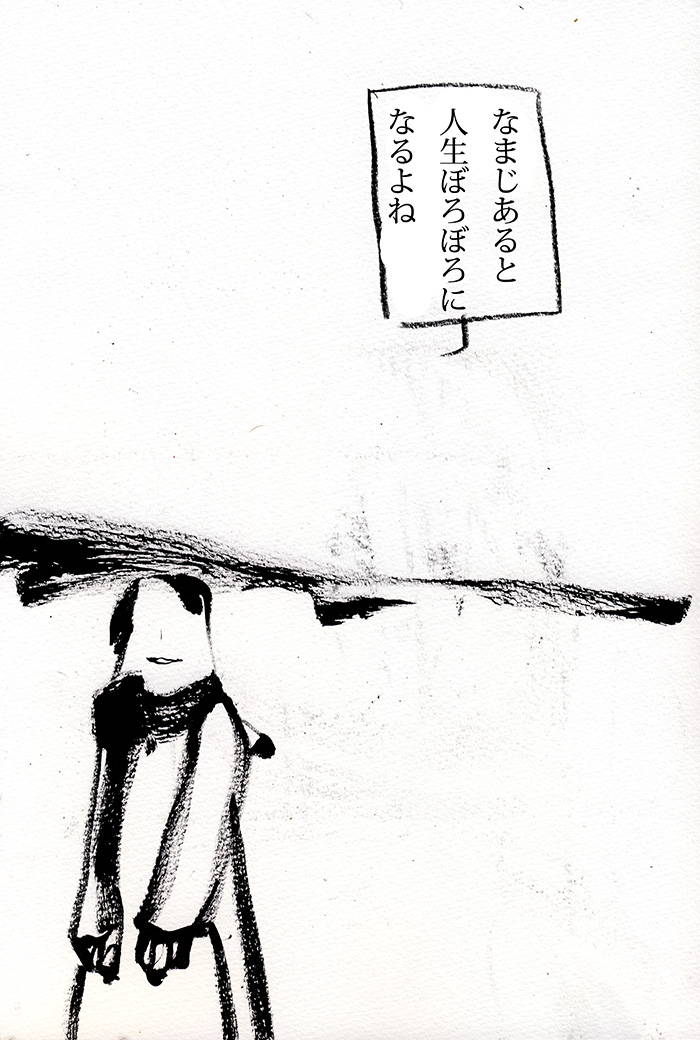 なまじあると
人生ぼろぼろに
なるよね